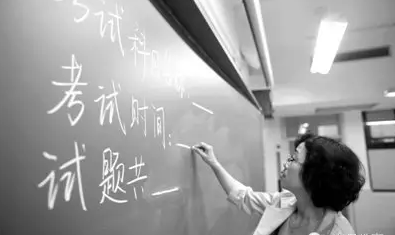 考试科目:
考试时间:
试题共